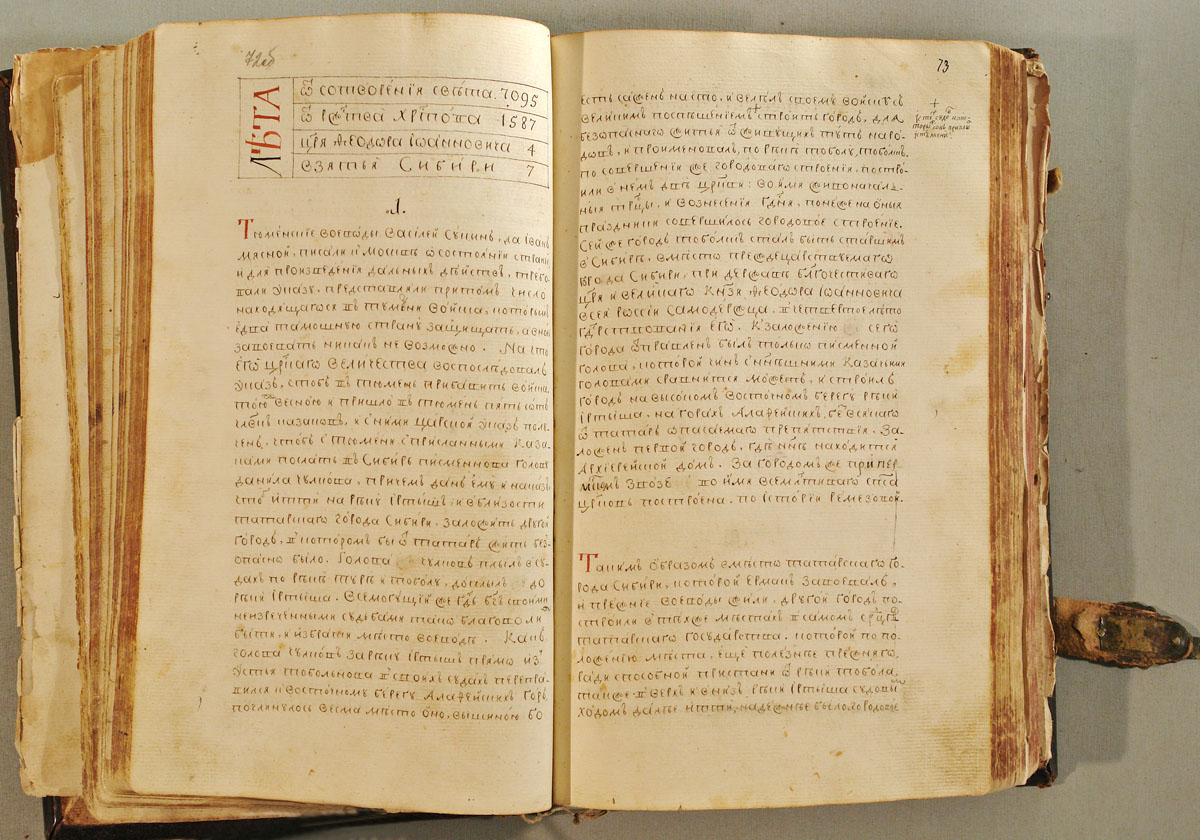 72об
ЛѢТА
Ѿ сотворенія свѣта. 7095
Ѿ рⷭ҇тва Хрⷭ҇това 1587
црѧ Ѳеодора Іѡанновича 4
взятья Сибири 7
1.
Тюменскіе воеводы Василей Сукинъ, да Іванъ
мясной, писали к Москвѣ ѡ состояніи страны
и для произведенія дальныхъ дѣйствъ, требо-
вали указу, представляли притомъ число
находящагося въ тюмени войска, которымъ
едва тамошную страну защищать, а вновь
завоевать никакъ не возможно. На что
его црⷭ҇каго величества воспослѣдовалъ
указъ, чтобъ въ тюмень прибавить войска,
тою весною и пришло въ тюмень пять сотъ
члвⷦ҇ъ казаковъ, и с ними царской указъ полу-
ченъ, чтобъ с тюмени с присланными каза-
ками послать въ Сибирь писменнова голову
данила чулкова, причемъ данъ ему и наказъ,
чтоб итти на рѣку іртышъ и в близости
татарскаго города Сибири, заложить другой
городъ, в которомъ бы ѿ татаръ жить без-
опасно было. Голова чулковъ плылъ в су-
дахъ по рѣкѣ турѣ и тоболу, доплылъ до
рѣки іртыша. Всемогущій же гдⷭ҇ь бгъ своими
неизреченными судьбами тако благоволи
быти, и избрати мѣсто воеводѣ. Какъ
голова чулковъ за рѣку іртышъ прямо из
устья тобольнова в своихъ судахъ перепра-
вился к восточному берегу Алафейскихъ горъ,
поглянулось весма мѣсто оно, вышиною бо
73
есть саженъ на сто, и велѣлъ своему войску съ
великимъ поспѣшеніемъ строить городъ, для
безопаснаго житья ѿ живущихъ тутъ наро-
довъ, и проименовалъ, по рѣкѣ тоболу, тоболскъ.
по совершеніи же городоваго строенія, постро-
или в немъ двѣ црⷦ҇ви: во имя живоначал-
ныя трⷪ҇цы, и вознесенія гдⷭ҇ня, понеже на оныя
праздники совершилось городовое строеніе.
Сей же городъ тоболскъ сталъ быть старшимъ
в Сибирѣ, вмѣсто преждецарствуемаго
города Сибири, при державѣ благочестиваго
црѧ и великаго Кнзя Ѳеодора Іѡанновича
всея россіи самодержца, в четвертое лѣто
гдⷭ҇рствованія его. К заложенію сего
города ѿправленъ былъ только писменной
голова, которой чинъ с нынѣшними казачьими
головами сравнится можетъ, и строилъ
городъ на высокомъ восточномъ берегу рѣки
іртыша, на горахъ Алафейскихъ, без всякаго
ѿ татаръ опасаемаго препятствия. За-
ложенъ первой городъ, гдѣ ннѣ находится
Архіерейской домъ. За городомъ же при пер-
мъ взвозѣ во имя всемлⷭ҇тиваго спⷭ҇а
црⷦ҇овь построена. по исторіи ремезовой.
Такимъ образомъ вмѣсто татарскаго го-
рода Сибири, которой Ермакъ завоевалъ,
и прежніе воеводы жили, другой городъ по-
строили в тѣхже мѣстахъ в самомъ срⷣцѣ
татарскаго государства, которой по по-
ложенію мѣста, еще полезнѣе прежняго,
ради способной пристани ѿ рѣки тобола,
такъже в верхъ и в низъ рѣки іртыша судовымъ
ходомъ далѣе итти, надежнѣе было. городовое